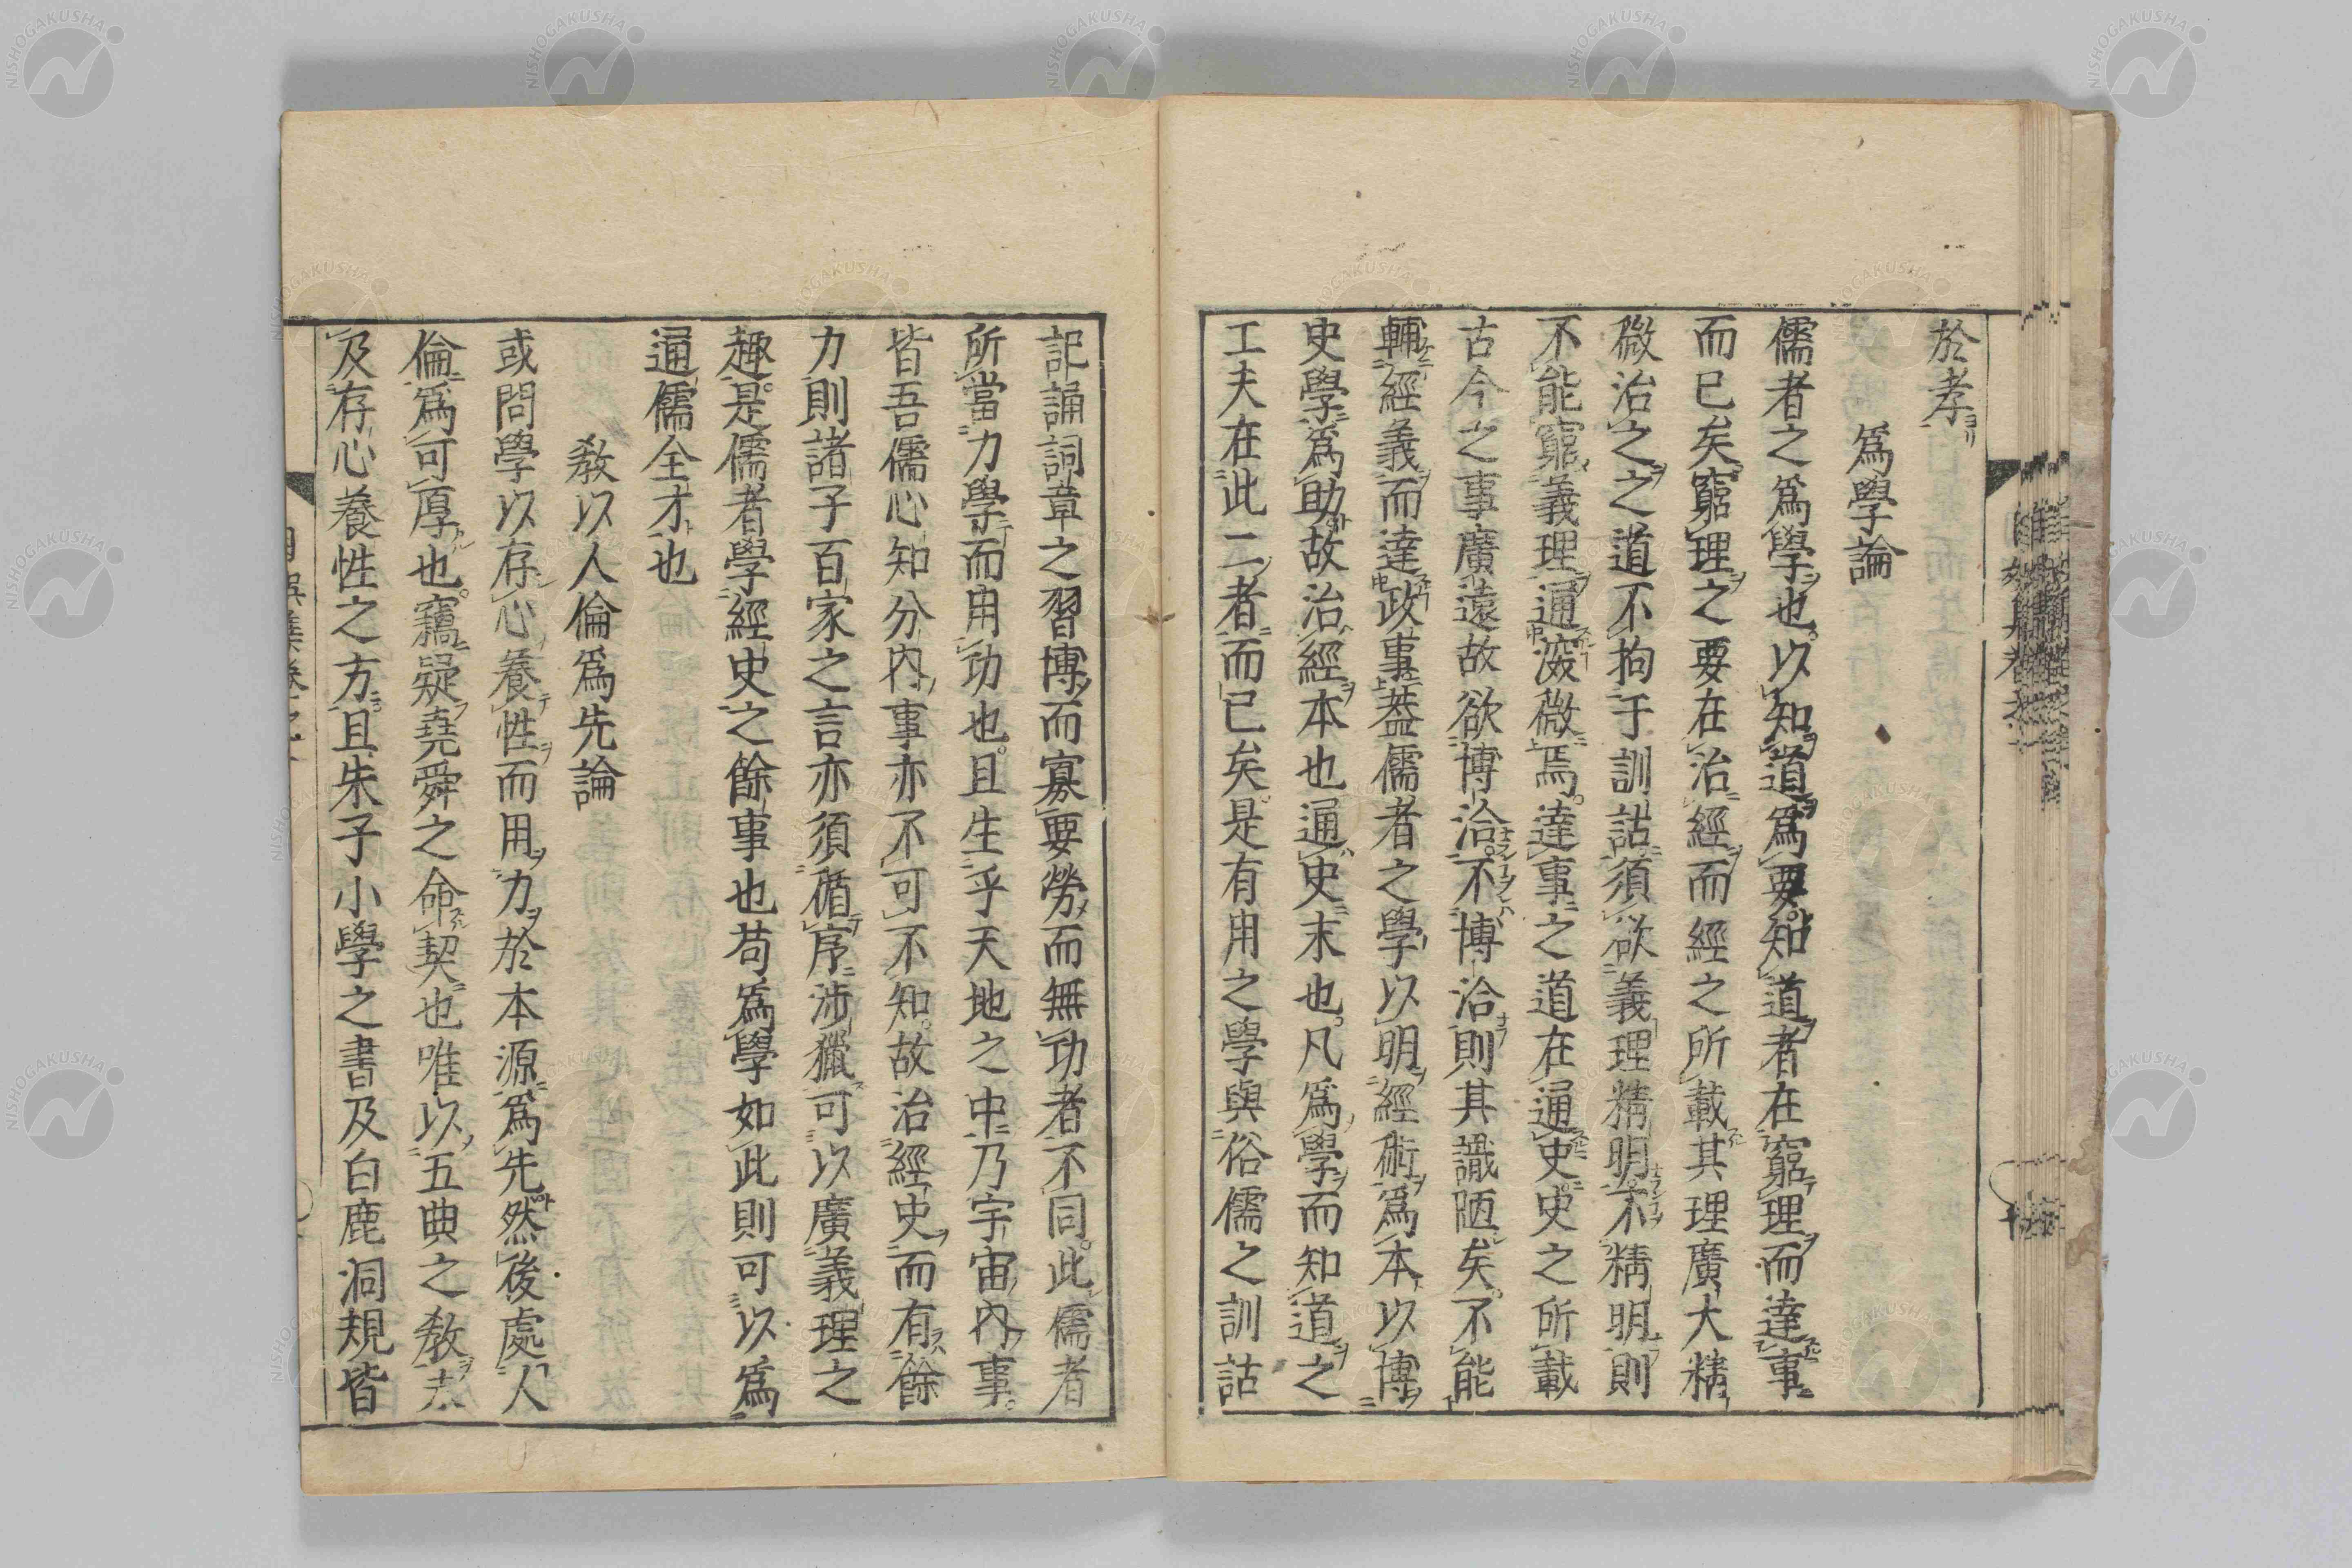 於孝
爲學論
儒者之爲學也以知道爲要知道者在窮理而達事
而已矣窮理之要在治經而經之所載其理廣大精
微治之之道不拘于訓詁須欲義理精明不精明則
不能窮義理通淵微焉達事之道在通史史之所載
古今之事廣遠故欲博洽不博洽則其識陋矣不能
輔經義而達政事蓋儒者之學以明經術爲本以博
史學爲助故治經本也通史末也凡爲學而知道之
工夫在此二者而已矣是有用之學與俗儒之訓詁
記誦詞章之習博而寡要勞而無功者不同此儒者
所當力學而用功也且生乎天地之中乃宇宙內事
皆吾儒心知分內事亦不可不知故治經史而有餘
力則諸子百家之言亦須循序涉獵可以廣義理之
趣是儒者學經史之餘事也苟爲學如此則可以爲
通儒全才也
敎以人倫爲先論
或問學以存心養性而用力於本源爲先然後處人
倫爲可厚也竊疑堯舜之命契也唯以五典之敎
及存心養性之方且朱子小學之書及白鹿洞規皆
NISHOGAKUSHA